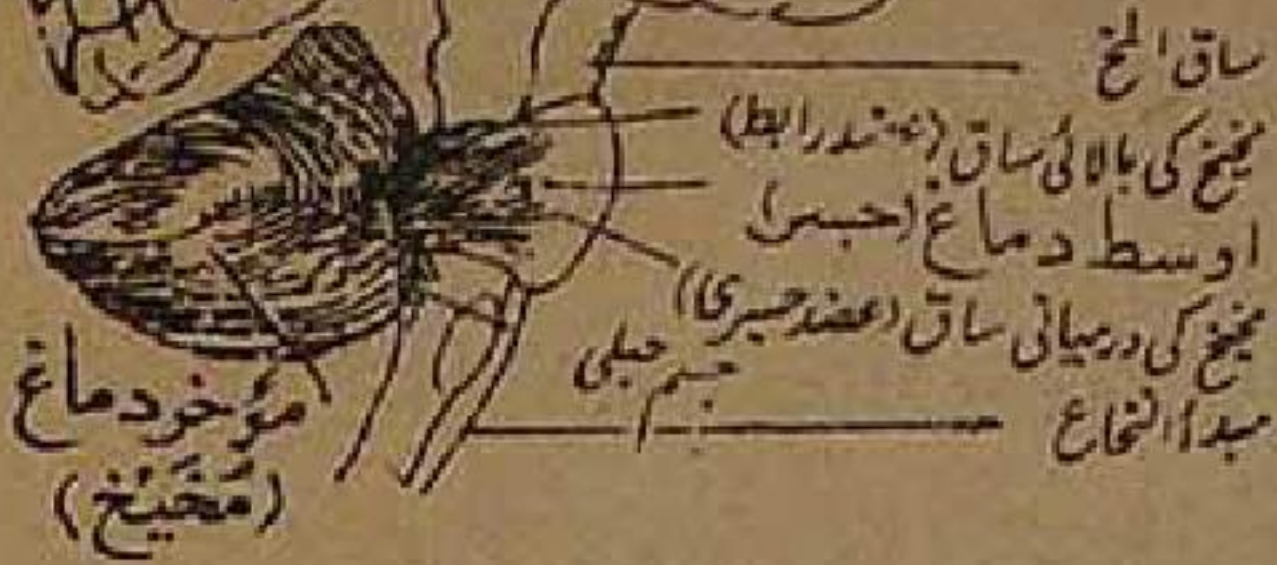 ساق المخ
مخیخ کی بالائی ساق (عضد رابط)
اوسط دماغ (جسر)
مخیخ کی درمیانی ساق (عضد جسری)
جسم حبلی
مبدأ النخاع
مؤخر دماغ
(مُخَیْخ)